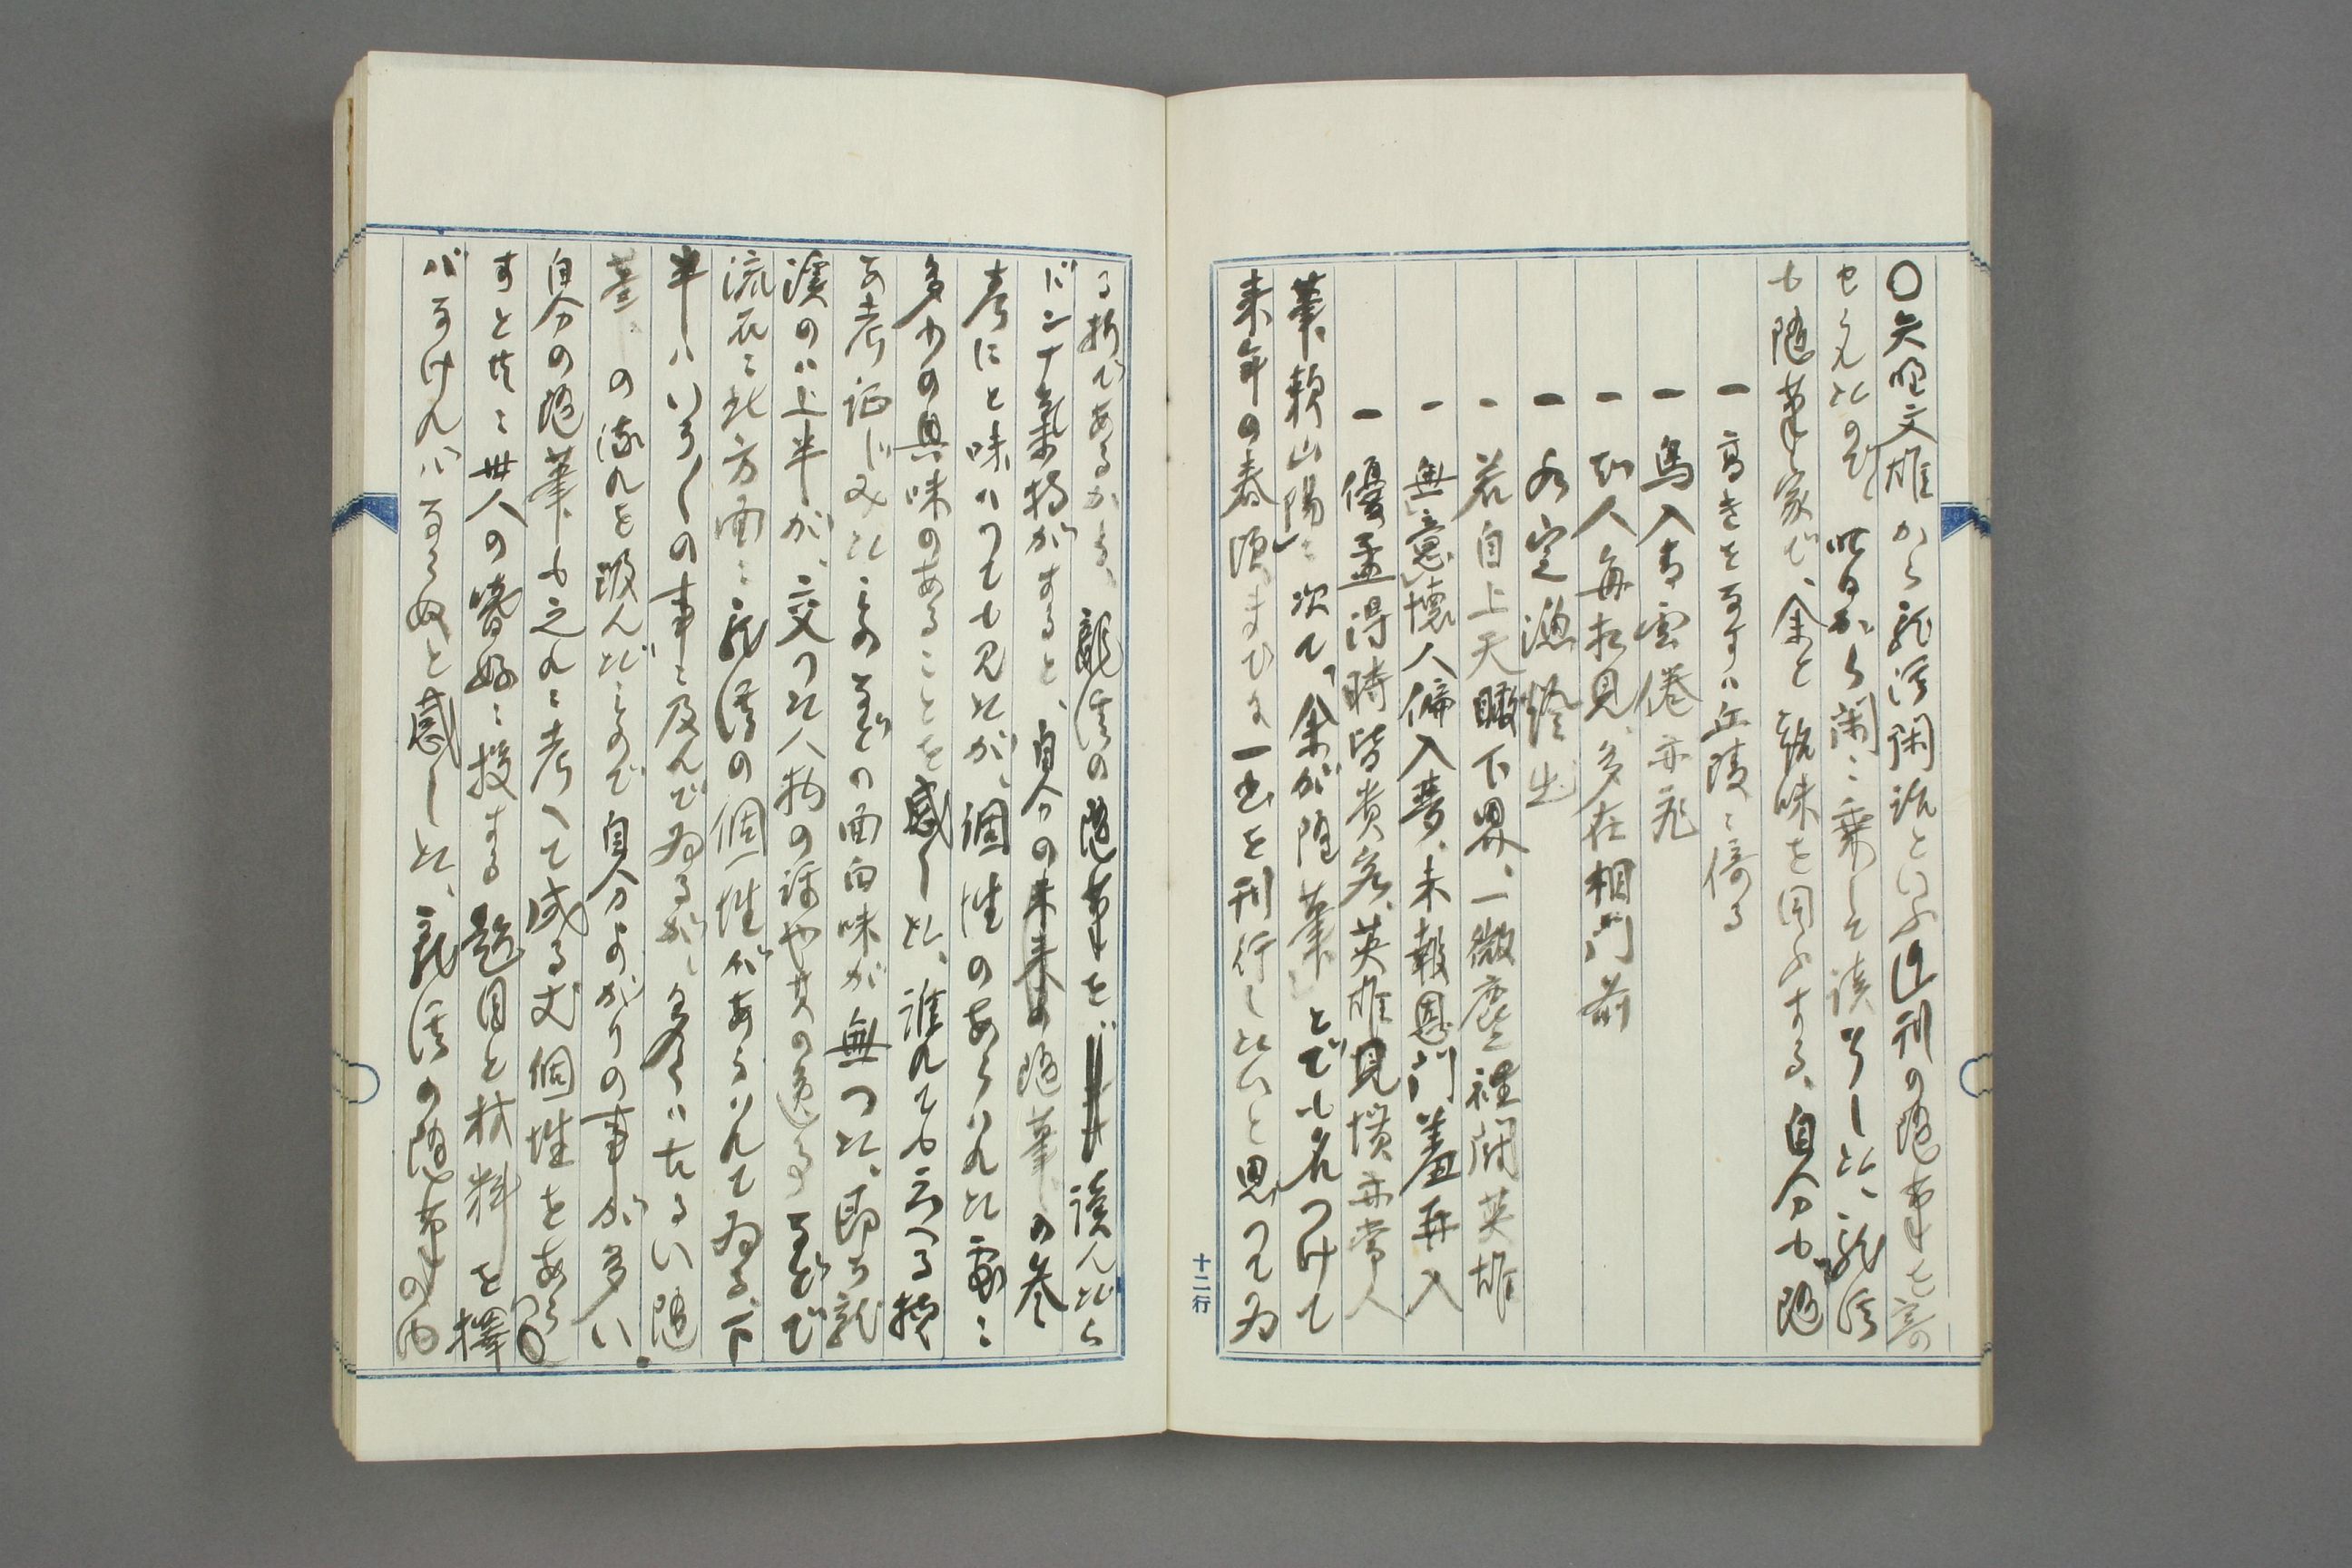 〇矢野文雄から龍渓閑話といふ近刊の随筆を寄
せられたので、昨日から閑に乗して読了した、龍渓
も随筆家で、余と趣味を同ふする、自分も随
一 高きをなすハ丘陵に倚る
一 鳥入青雲倦亦飛
一 知人毎相見多在相門前
一 水定漁燈出
一 若自上天瞰下界、一微塵裡闘英雄
一 無意懐人偏入夢、未報恩門羞再入
一 優孟得時皆貴客、英雄見慣亦常人
筆頼山陽に次て、「余が随筆」とでも名つけて
来年の春頃までに一書を刊行したいと思つてゐ
る折であるから、龍渓の随筆を読んだら
ドンナ気持がすると、自分の未来の随筆の参
考にと味ハつても見たが、個性のあらハれた処に
多少の興味のあることを感した、誰れでも云へる様
な考証じみたものなどの面白味が無つた、即ち龍
渓のハ上半が、交つた人物の評や其の逸話などで
流石に此方面に龍渓の個性があらハれてゐる、下
半ハいろ〱の事に及んでゐるが、多くハ古るい随
筆の流れを汲んだもので自分よがりの事が多い
自分の随筆も之れに考へて成る丈個性をあら
すと共に世人の嗜好に投する題目と材料を択
バなけれハならぬと感した、龍渓の随筆の内
十二行